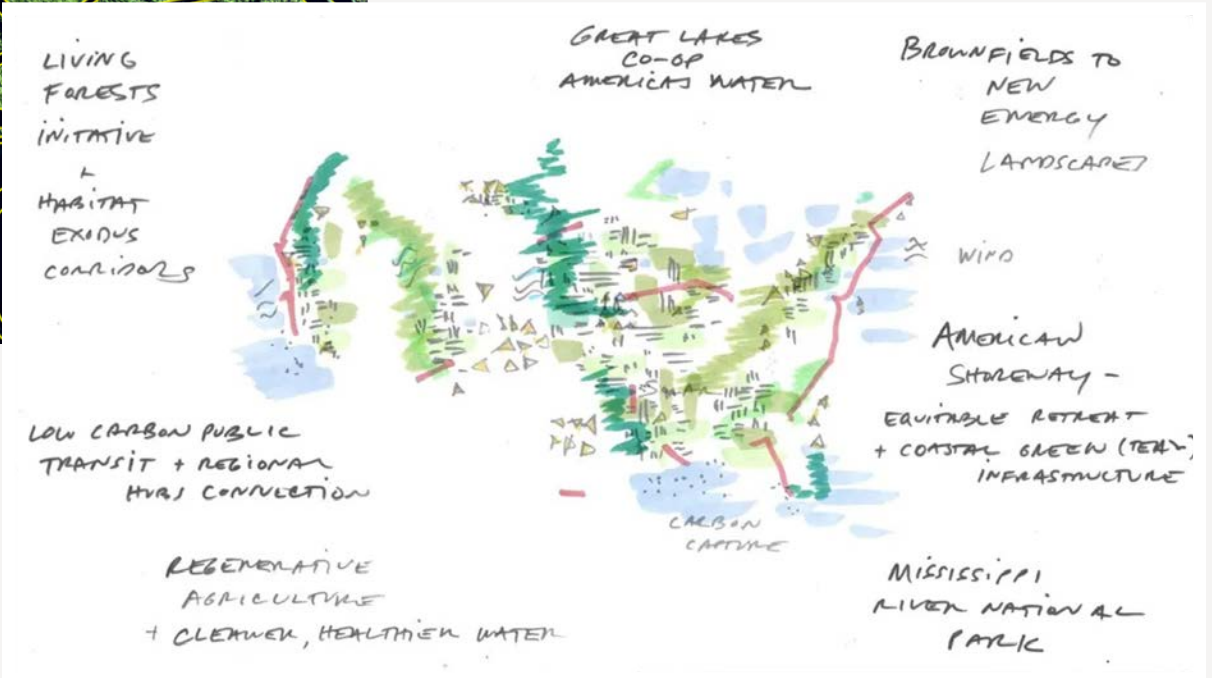 LIVING
FORESTS
INITATIVE
+
HABITAT
EXODUS
CORRIDORS
GREAT LAKES
CO-OP
AMERICAS WATER
BROWNFIELDS TO
NEW
ENERGY
LANDSCAPES
WIND
AMERICAN
SHOREWAY -
EQUITABLE RETREAT
+ COASTAL GREEN (TEAL)
INFRASTRUCTURE
LOW CARBON PUBLIC
TRANSIT + REGIONAL
HUBS CONNECTION
CARBON
CAPTURE
REGENERATIVE
AGRICULTURE
+ CLEANER, HEALTHIER WATER
MISSISSIPPI
RIVER NATIONAL
PARK